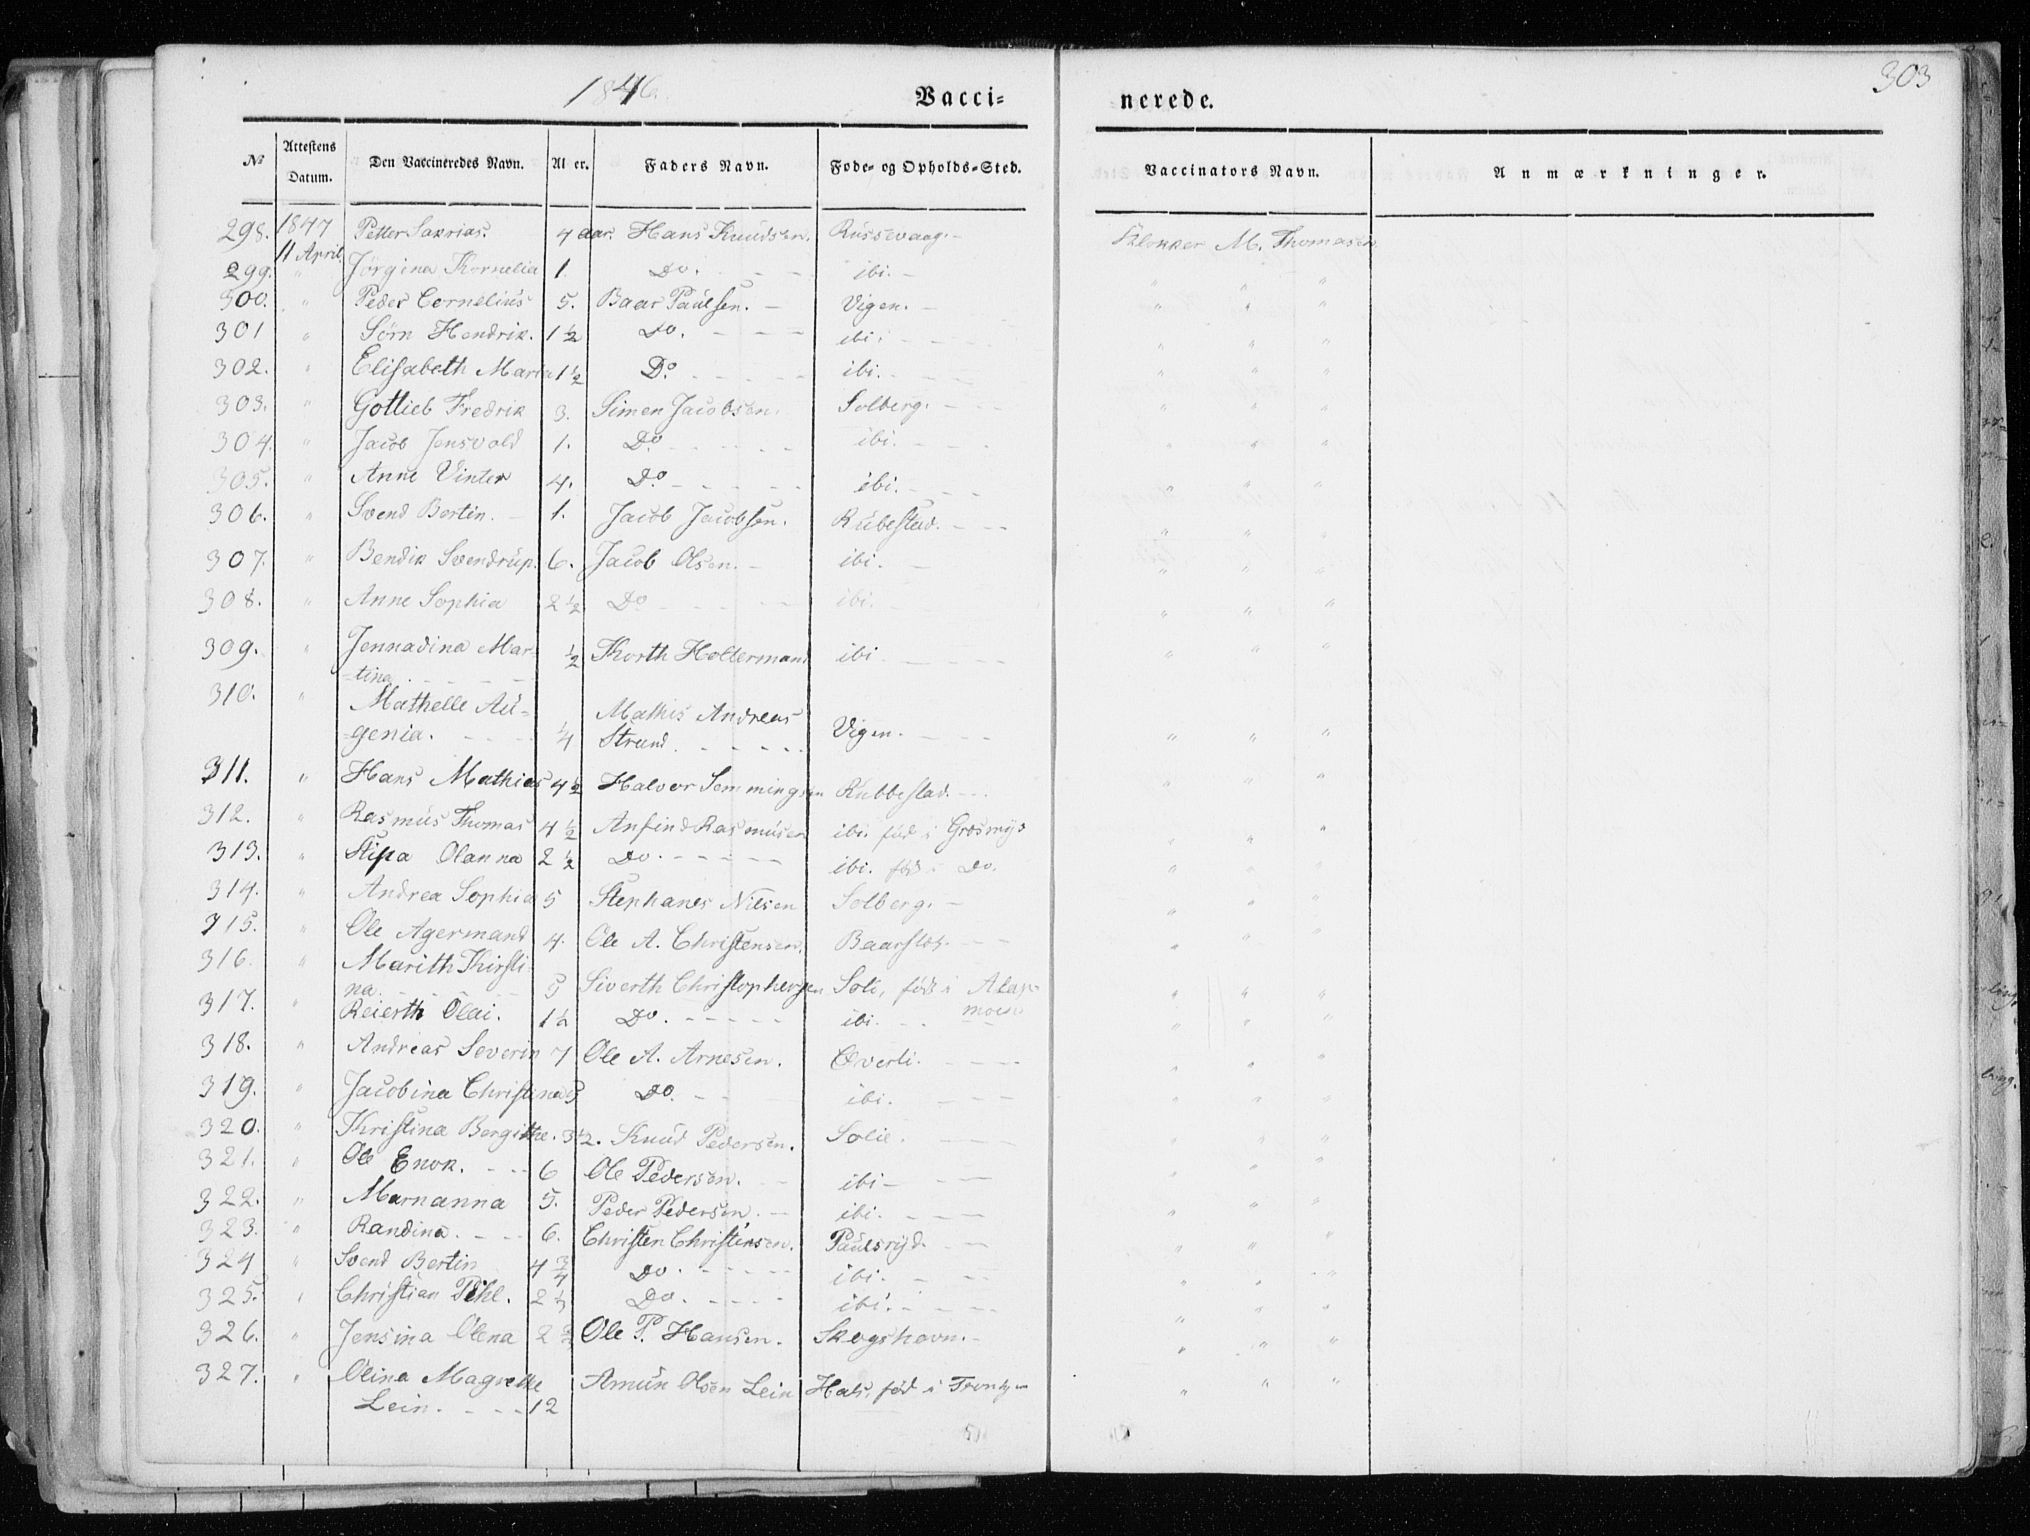 303
1846. Vacci= nerede.
No Attestens Datum. Den Vaccineredes Navn. Al er. Faders Navn. Fode- og Opholds-Sted. Vaccinators Navn. Anmærkninger.
298. 1847 11 April. Petter Sakrias. 4 aar. Hans Knudsen. Russevaag. Klokker M. Thomasen
299. " Jørgina Kornelia 1. Do. ibi. " " "
300. " Peder Cornelius 5. Baar Paulsen. Vigen. " " "
301 " Sørn Hendrik. 1 ½ Do. ibi. " " "
302. " Elisabeth Maria 1 ½ Do. ibi. " " "
303. " Gotlieb Fredrik 3. Simen Jacobsen. Solberg. " " "
304. " Jacob Jensvold 1. Do. ibi. " " "
305. " Anne Vinter 4. Do. ibi. " " "
306. " Svend Bertin. 1. Jacob Jacobsen. Rubestad. " " "
307. " Bendik Svendrup. 6. Jacob Olsen. ibi. " " "
308. " Anne Sophia 2 ½ Do ibi. " " "
309. " Jennadina Mar-
tina ½ Korth Holtermand ibi " " "
310. " Mathelle Au-
genia. ¼ Mathis Andreas
Strand. Vigen. " " "
311. " Hans Mathias 4 ½ Halvor Semmingsen Rubbestad. " " "
312. " Rasmus Thomas 4 ½ Anfind Rasmusen ibi. föd i " " "
313. " Olanna 2 ½ Do. ibi. föd i Do. " " "
314. " Andrea Sophia 5 Stephanes Nilsen Solberg. " " "
315. " Ole Agermand 4. Ole A. Christensen. " " "
316. " Marith Kirsti-
na. Siverth Christophersen Soli, föd i " " "
317. " Reierth Olai. 1 ½ Do. ibi. " " "
318. " Andreas Severin 7 Ole A. Arnesen. Overli. " " "
319. " Jacobina Christina Do. ibi. " " "
320. " Kristina Bergithe. 3 ½. Knud Pedersen. Solie. " " "
321. " Ole Enok. 6 Ole Pedersen. ibi " " "
322. " Marnanna 5. Peder Pedersen. ibi. " " "
323. " Randina. 6. Christen Christensen. Paulsryd. " " "
324 " Svend Bertin 4 ¾ Do. ibi. " " "
325. " Christian Pihl. 2 Do. ibi. " " "
326. " Jensina Olena 2 Ole P. Hansen. Skogshavn. " " "
327. " Olina Magrethe
Lein. 12 Amun Olsen Lein Hals, föd i " " "